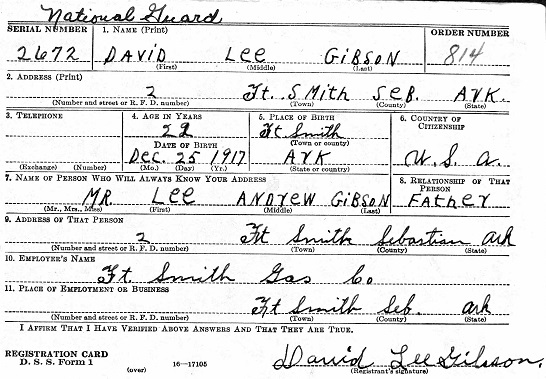 National Guard
SERIAL NUMBER 1. NAME (Print) ORDER NUMBER
2672 DAVID LEE GIBSON 814
(First) (Middle) (Last)
2. ADDRESS (Print)
2 Ft. SMith SeB. Ark.
(Number and street or R. F. D. number) (Town) (County) (State)
3. TELEPHONE 4. AGE IN YEARS 5. PLACE OF BIRTH 6. COUNTRY OF CITIZENSHIP
22 Ft Smith
DATE OF BIRTH (Town or county)
Dec. 25 1917 ArK U. S. A.
(Exchange) (Number) (Mo.) (Day) (Yr.) (State or country)
7. NAME OF PERSON WHO WILL ALWAYS KNOW YOUR ADDRESS 8. RELATIONSHIP OF THAT PERSON
MR. LEE ANDREW GIBSON FATHer
(Mr., Mrs., Miss) (First) (Middle) (Last)
9. ADDRESS OF THAT PERSON
2 Ft Smith Sebastian Ark
(Number and street or R. F. D. number) (Town) (County) (State)
10. EMPLOYER'S NAME
Ft. Smith Gas Co
11. PLACE OF EMPLOYMENT OR BUSINESS
Ft Smith Seb. Ark
(Number and street or R. F. D. number) (Town) (County) (State)
I AFFIRM THAT I HAVE VERIFIED ABOVE ANSWERS AND THAT THEY ARE TRUE.
REGISTRATION CARD
D. S. S. Form 1 16—17105 David Lee Gibson.
(over) (Registrant's signature)